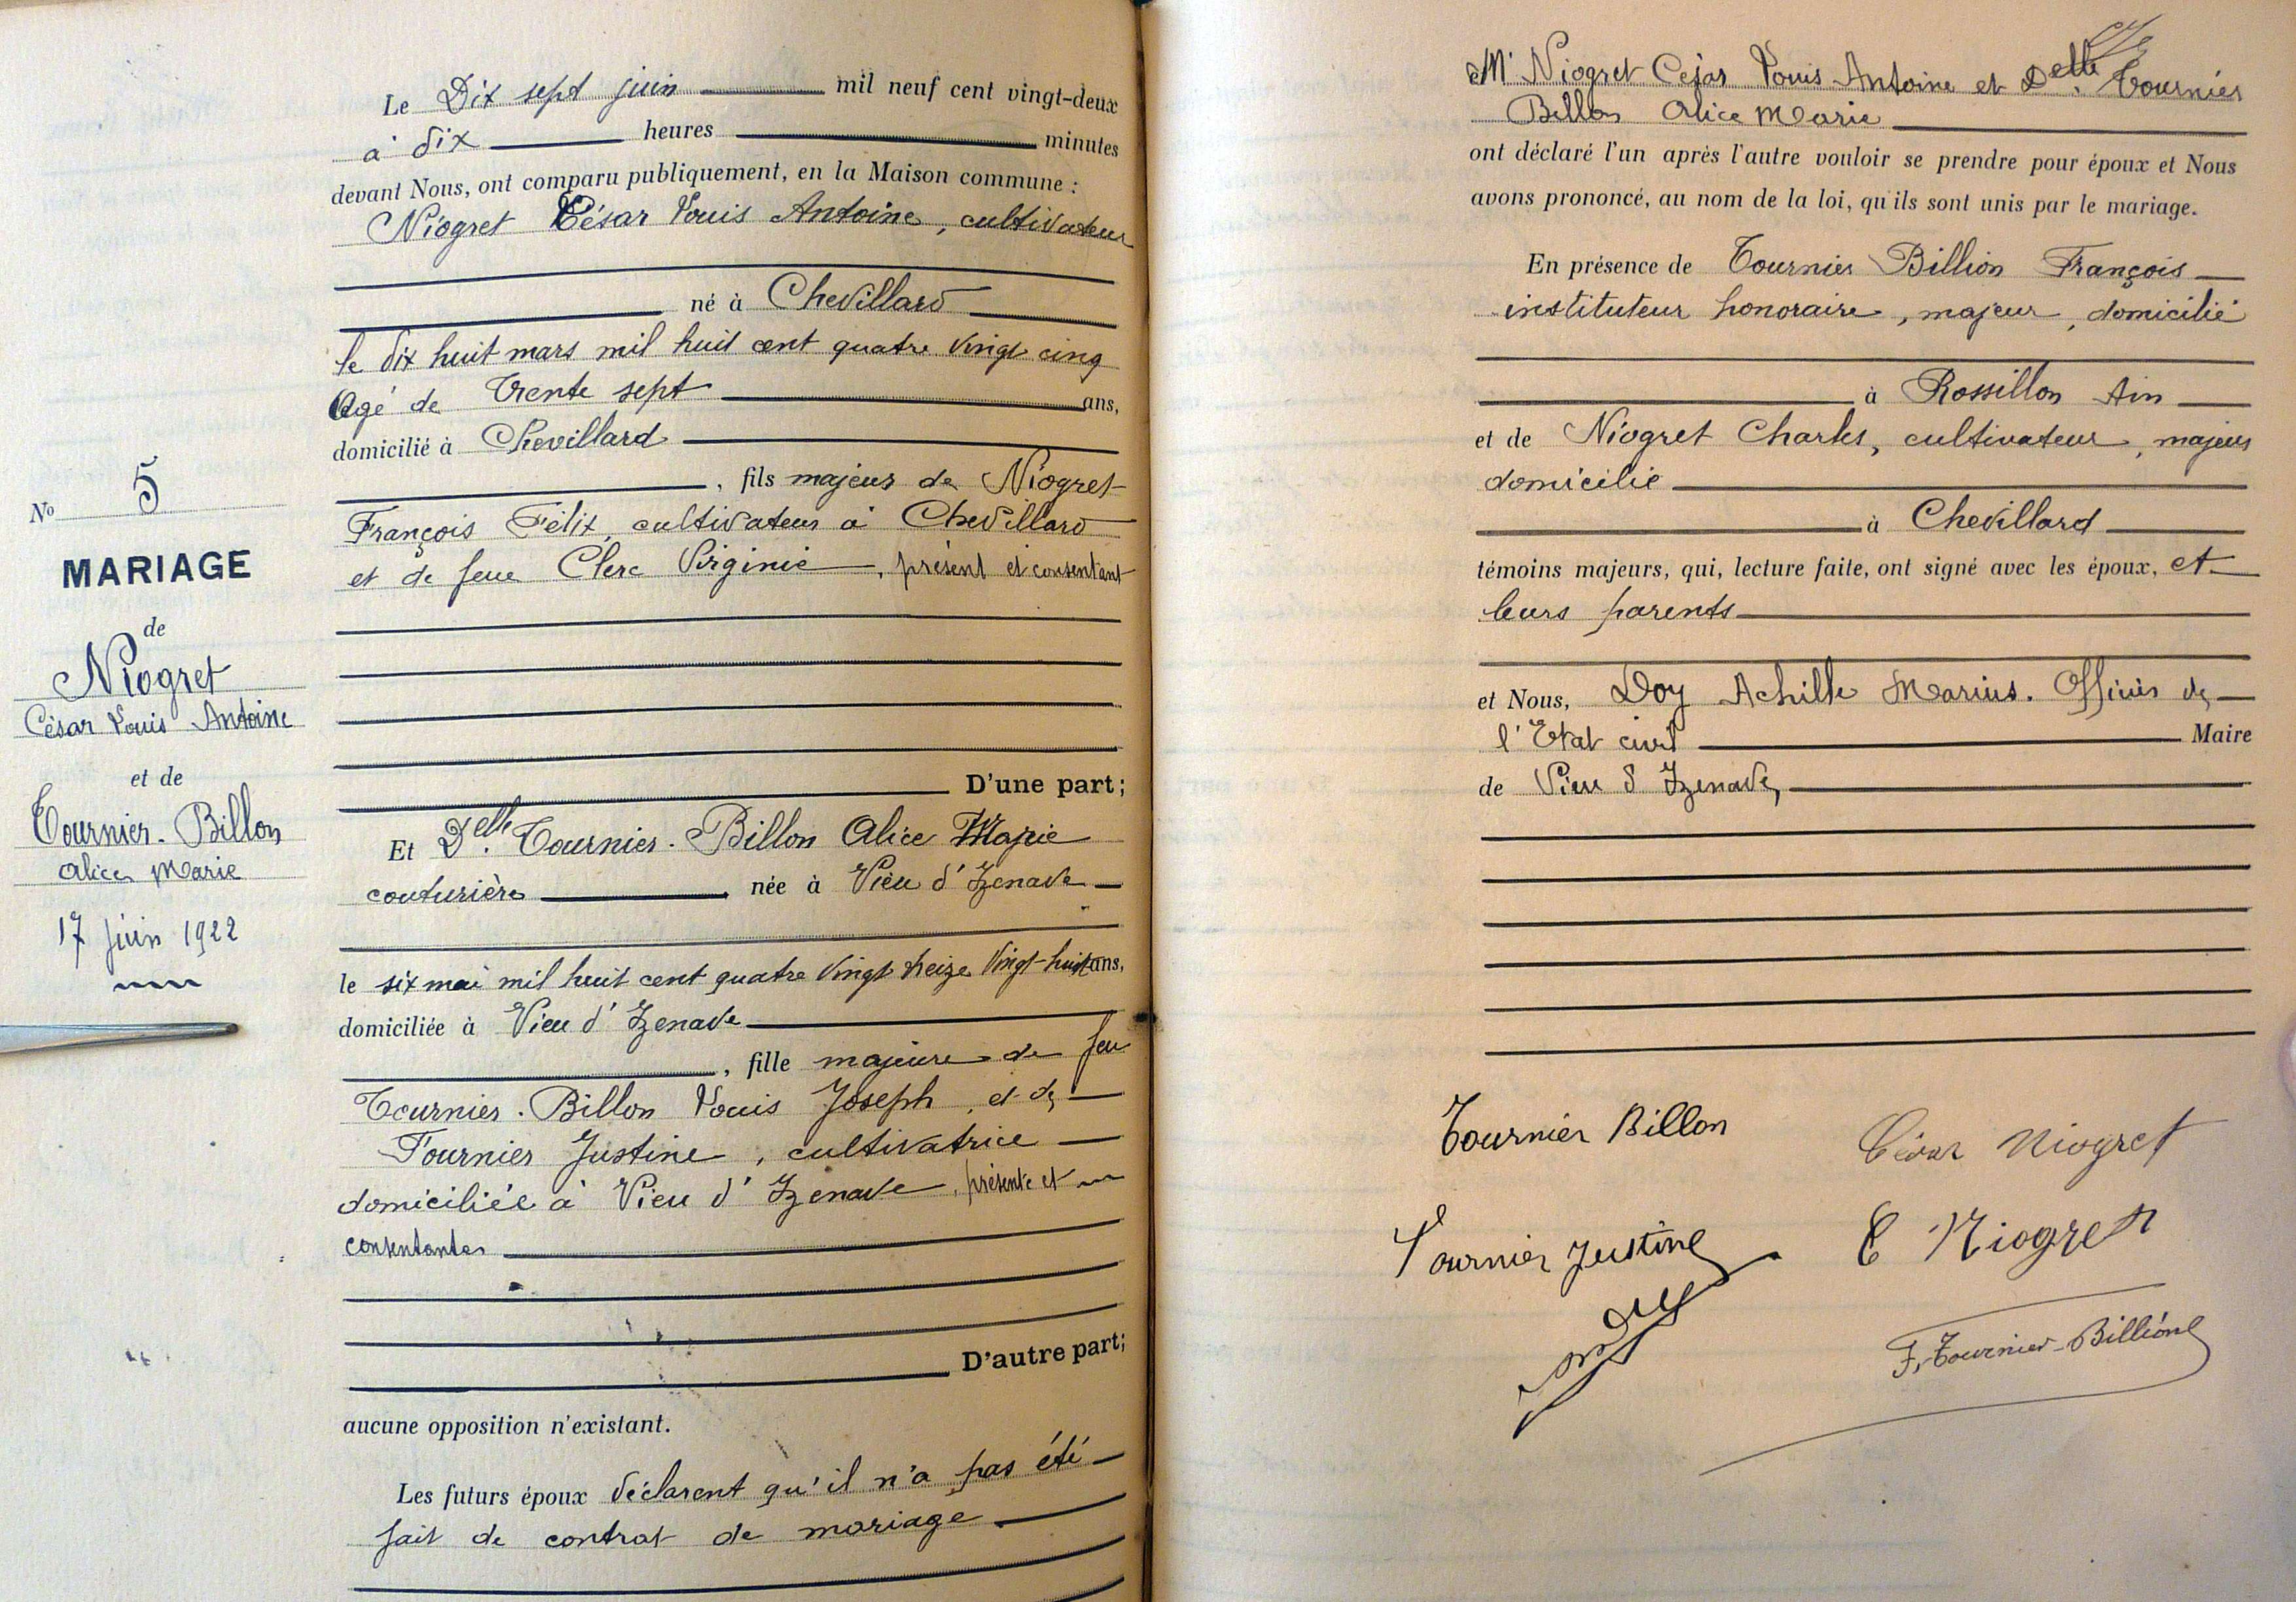 No 5
MARIAGE
de
Niogret
César Louis Antoine
et de
Tournier-Billon
Alice Marie
17 juin 1922
Le Dix sept juin mil neuf cent vingt-deux
à dix heures minutes
devant Nous, ont comparu publiquement, en la Maison commune :
Niogret César Louis Antoine, cultivateur
né à Chevillard
le dix huit mars mil huit cent quatre vingt cinq
Agé de Trente sept ans,
domicilié à Chevillard
, fils majeur de Niogret
François Félix, cultivateur à Chevillard
et de feue Clerc Virginie, présent et consentant
D'une part;
Et Delle Tournier-Billon Alice Marie
couturière, née à Vieu d'Izenave
le six mai mil huit cent quatre vingt treize Vingt-huit ans,
domiciliée à Vieu d'Izenave
, fille majeure de feu
Tournier-Billon Louis Joseph, et de
Fournier Justine, cultivatrice
domiciliée à Vieu d'Izenave, présente et
consentante
D'autre part;
aucune opposition n'existant.
Les futurs époux déclarent qu'il n'a pas été
fait de contrat de mariage
Mr Niogret César Louis Antoine et Delle Tournier
Billon Alice Marie
ont déclaré l'un après l'autre vouloir se prendre pour époux et Nous
avons prononcé, au nom de la loi, qu'ils sont unis par le mariage.
En présence de Tournier Billion François
instituteur honoraire, majeur, domicilié
à Rossillon Ain
et de Niogret Charles, cultivateur, majeur
domicilié
à Chevillard
témoins majeurs, qui, lecture faite, ont signé avec les époux, et
leurs parents
et Nous, Doy Achille Marius. Officier de
l'Etat civil Maire
de Vieu d'Izenave,
Tournier Billon César Niogret
Fournier Justine C Niogret
F. Tournier-Billion